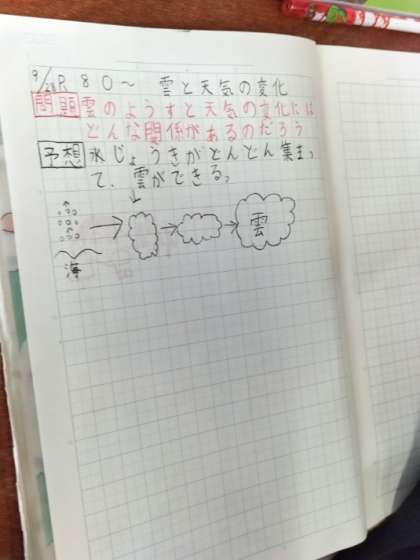 9/28 P80～ 雲と天気の変化
問題 雲のようすと天気の変化には
どんな関係があるのだろう
予想 水じょうきがどんどん集まっ
て、雲ができる。
雲
海